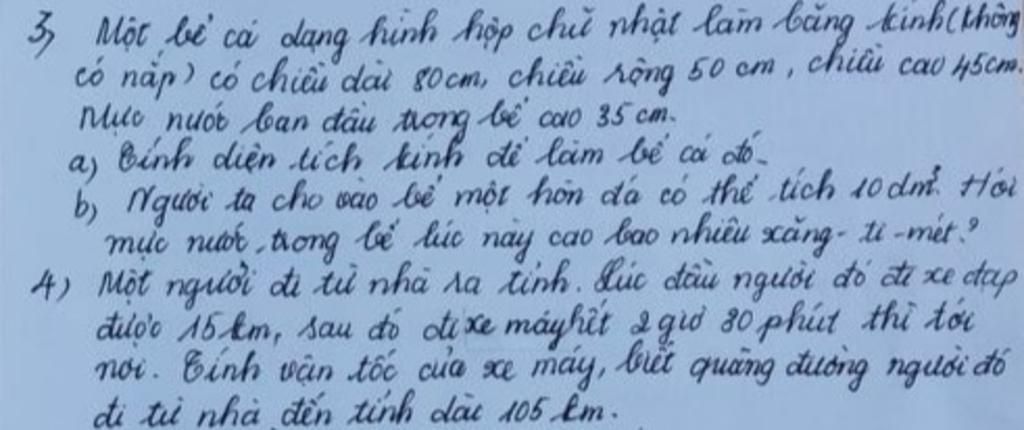 3) Một bể cá dạng hình hộp chữ nhật làm bằng kính (không
có nắp) có chiều dài 80cm, chiều rộng 50 cm, chiều cao 45cm.
Mực nước ban đầu trong bể cao 35 cm.
a) Tính diện tích kính để làm bể cá đó.
b) Người ta cho vào bể một hòn đá có thể tích 10dm³. Hỏi
mực nước trong bể lúc này cao bao nhiêu xăng-ti-mét?
4) Một người đi từ nhà ra tỉnh. Lúc đầu người đó đi xe đạp
được 15km, sau đó đi xe máy hết 2 giờ 30 phút thì tới
nơi. Tính vận tốc của xe máy, biết quãng đường người đó
đi từ nhà đến tỉnh dài 105 km.